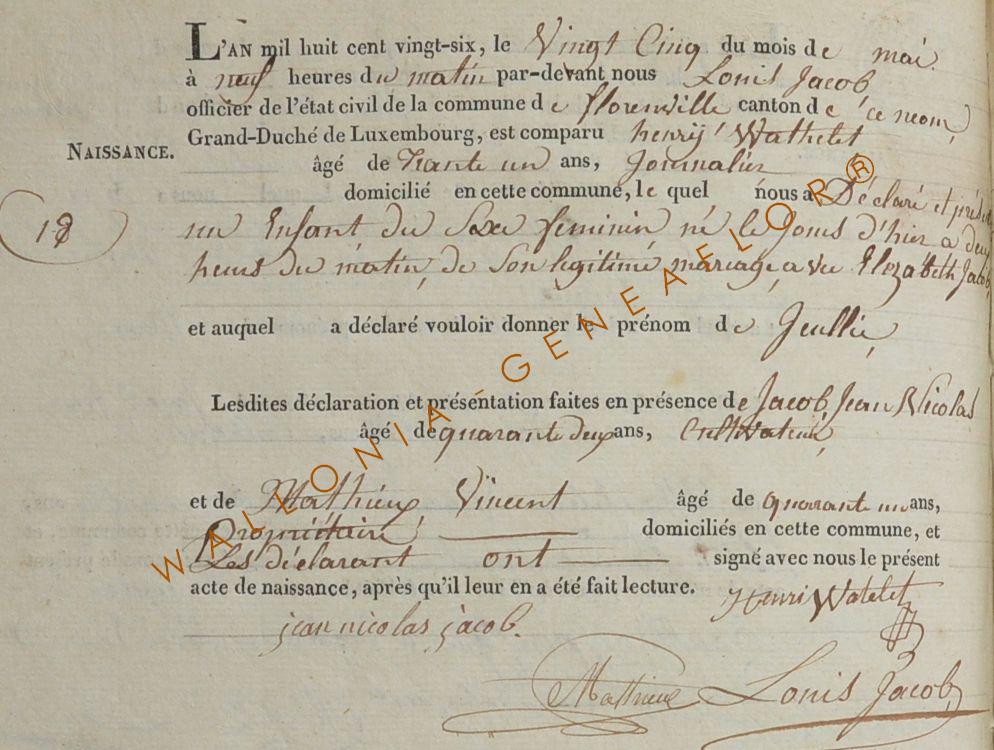 L'AN mil huit cent vingt-six, le Vingt Cinq du mois de mai.
à neuf heures du matin par-devant nous Louis Jacob
officier de l'état civil de la commune de florenville canton de ce neom,
Grand-Duché de Luxembourg, est comparu henrÿ Wathelet
NAISSANCE.
âgé de trante un ans, Journalier
domicilié en cette commune, le quel nous a Déclaré et présenté
18
un Enfant du Sexe feminin, né le Jours d'hier a deux
heurs du matin, de Son legitime mariage, avec Elezabeth Jacob,
et auquel a déclaré vouloir donner le prénom de Jeullie,
Lesdites déclaration et présentation faites en présence de Jacob, Jean Nicolas
âgé de quarante deux ans, Cultivateur,
et de Mathieu, Vincent âgé de quarante un ans,
Propriétaire domiciliés en cette commune, et
Les déclarant ont signé avec nous le présent
acte de naissance, après qu'il leur en a été fait lecture.
Henri Watelet
jean nicolas jacob.
Mathieu Louis Jacob
WALLONIA-GENEAELOR®